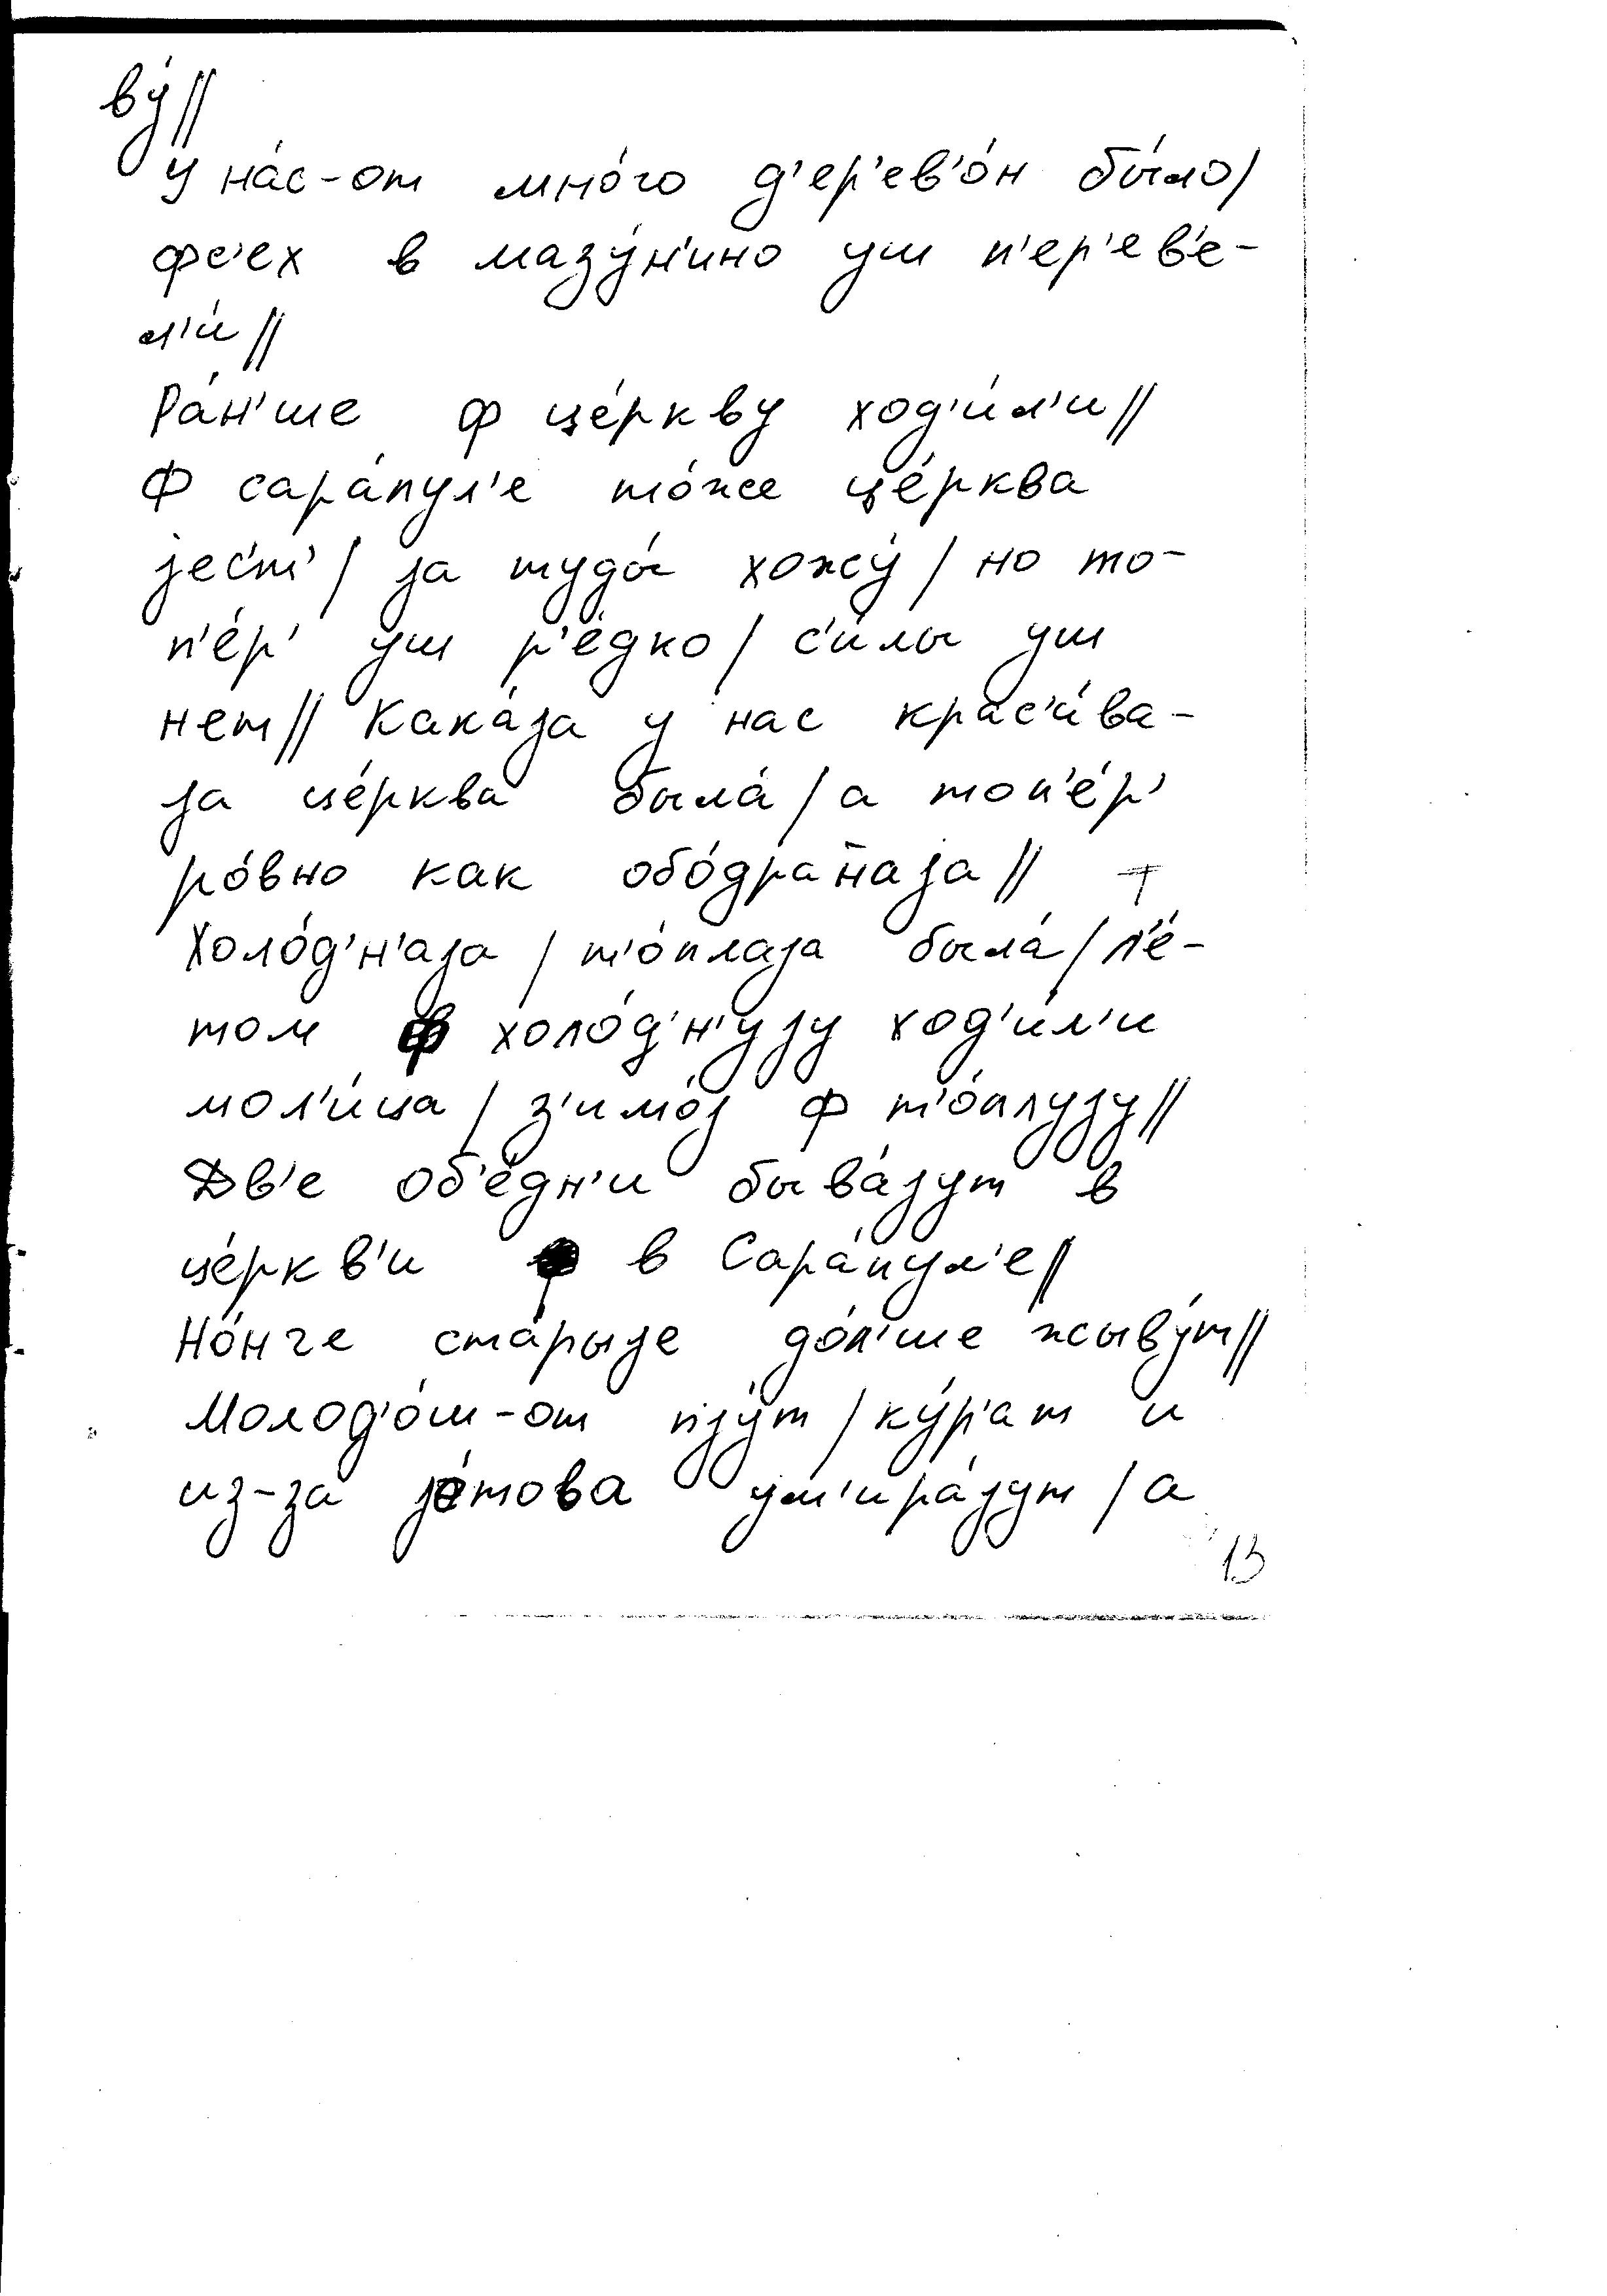 ву́//
У на́с-от мно́го д'ер'ев'о́н бы́ло/
фс'ех в мазу́н'ино уш п'ер'ев'е-
л'и́//
Ра́н'ше ф це́ркву ход'и́л'и//
Ф сара́пул'е то́же це́рква
јес'т'/ ја туды́ хожу́/ но то-
п'е́р' уш р'е́дко/ с'и́лы уш
нет// Кака́ја у нас крас'и́ва-
ја це́рква была́/ а топ'е́р'
ро́вно как обо́дран̄аја//
Холо́д'н'аја/ т'о́плаја была́/ л'е́-
том ф холо́д'н'ују ход'и́л'и
мол'и́ца/ з'имо́ј ф т'о́плују//
Дв'е об'е́дн'и быва́јут в
це́ркв'и в Сара́пул'е//
Но́нче ста́рыје до́л'ше жыву́т//
Молод'о́ш-от пју́т/ ку́р'ат и
из-за је́това ум'ира́јут/ а
13